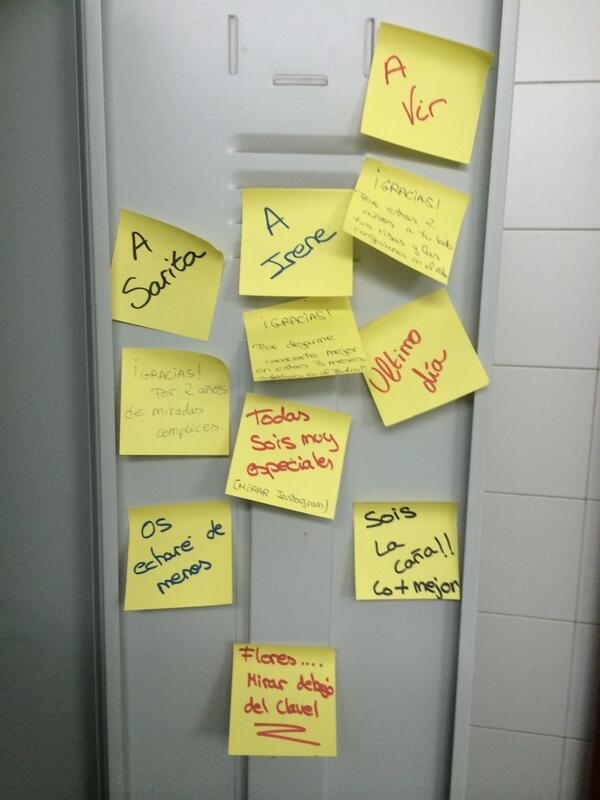 A
Vir
¡GRACIAS!
Por estos 2
años a tu lado
tus risas y las
en el
A
Irene
A
Sarita
¡GRACIAS!
Por dejarme
conocerte mejor
en estos 3 meses,
en el
Ultimo
día
¡GRACIAS!
Por 2 años
de miradas
complices.
Todas
Sois muy
especiales
(MIRAR Instagram)
Os
echaré de
menos
Sois
La
caña!!
Co + mejor
Flores....
Mirar debajo
del Clavel